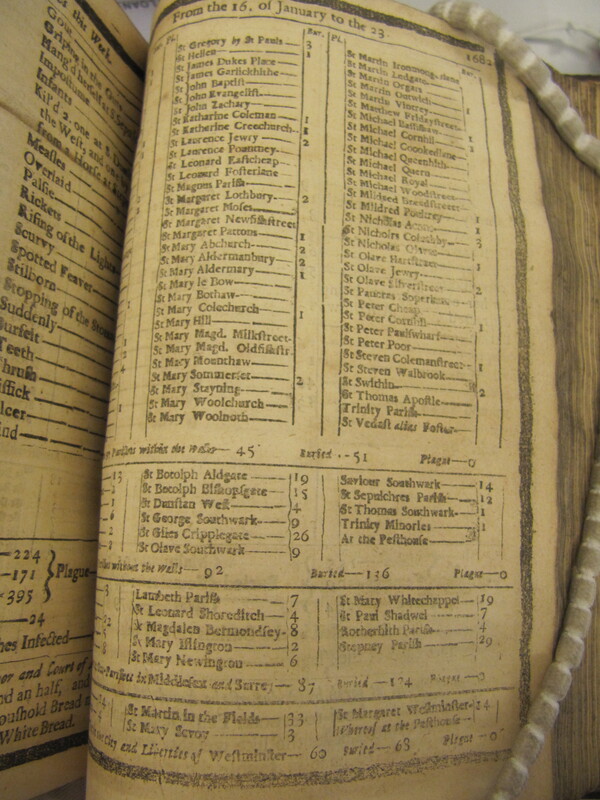 From the 16. of January to the 23.
1682
St Gregory by St Pauls 3
St Hellen 1
St James Dukes Place
St James Garlickhithe
St John Baptist
St John Evangelist
St John Zachary
St Katharine Coleman 1
St Katherine Creechurch 1
St Laurence Jewry 2
St Laurence Pountney
St Leonard Eastcheap
St Leonard Fosterlane
St Magnus Parish
St Margaret Lothbury 2
St Margaret Moses
St Margaret Newfishstreet
St Margaret Pattons 1
St Mary Abchurch 2
St Mary Aldermanbury 2
St Mary Aldermary 1
St Mary le Bow
St Mary Bothaw
St Mary Colechurch 1
St Mary Hill
St Mary Magd. Milkstreet
St Mary Magd. Oldfishstr.
St Mary Mounthaw
St Mary Sommerset 2
St Mary Stayning
St Mary Woolchurch
St Mary Woolnoth
St Martin Ironmongerlane
St Martin Ludgate
St Martin Orgars
St Martin Outwich
St Martin Vintrey
St Matthew Fridaystreet
St Michael Bassishaw
St Michael Cornhil
St Michael Crookedlane
St Michael Queenhith
St Michael Quern
St Michael Royal
St Michael Woodstreet
St Mildred Breadstreet
St Mildred Poultrey
St Nicholas Acons
St Nicholas Coleabby
St Nicholas Olaves
St Olave Hartstreet
St Olave Jewry
St Olave Silverstreet
St Pancras Soperlane
St Peter Cheap
St Peter Cornhil
St Peter Paulswharf
St Peter Poor
St Steven Colemanstreet
St Steven Walbrook
St Swithin
St Thomas Apostle
Trinity Parish
St Vedast alias Foster
Parishes within the Walls 45 Buried 51 Plague 0
St Botolph Aldgate 19
St Botolph Bishopsgate 15
St Dunstan West 4
St George Southwark 9
St Giles Cripplegate 26
St Olave Southwark 9
Saviour Southwark 14
St Sepulchres Parish 12
St Thomas Southwark 1
Trinity Minories 1
At the Pesthouse
without the Walls 92 Buried 136 Plague 0
Lambeth Parish 7
St Leonard Shoreditch 4
St Magdalen Bermondsey 8
St Mary Islington 2
St Mary Newington 6
St Mary Whitechappel 19
St Paul Shadwel 7
Rotherhith Parish 4
Stepney Parish 29
Parishes in Middlesex and Surrey 87 Buried 124 Plague 0
St Martin in the Fields 33
St Mary Savoy 3
St Margaret Westminster 24
Whereof at the Pesthouse
and Liberties of Westminster 60 Buried 68 Plague 0
Infants
Measles
Overlaid
Palsie
Rickets
Rising of the Lights
Scurvy
Spotted Feaver
Stilborn
Stopping of the
Suddenly
Surfeit
Teeth
Thrush
224
171
395
Plague
24
Infected
and an half, and
Houshold Bread
White Bread.